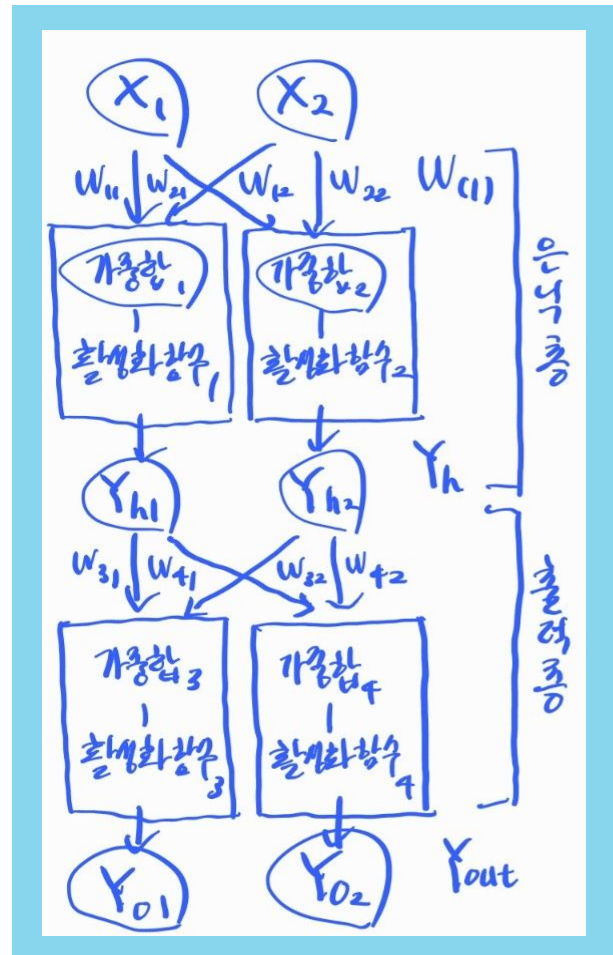 X₁ X₂
W₁₁ W₂₁ W₁₂ W₂₂ W₍₁₎
가중합₁ 가중합₂
활성화함수₁ 활성화함수₂
은닉층
Yₕ₁ Yₕ₂ Yₕ
W₃₁ W₄₁ W₃₂ W₄₂
가중합₃ 가중합₄
활성화함수₃ 활성화함수₄
출력층
Y₀₁ Y₀₂ Yout